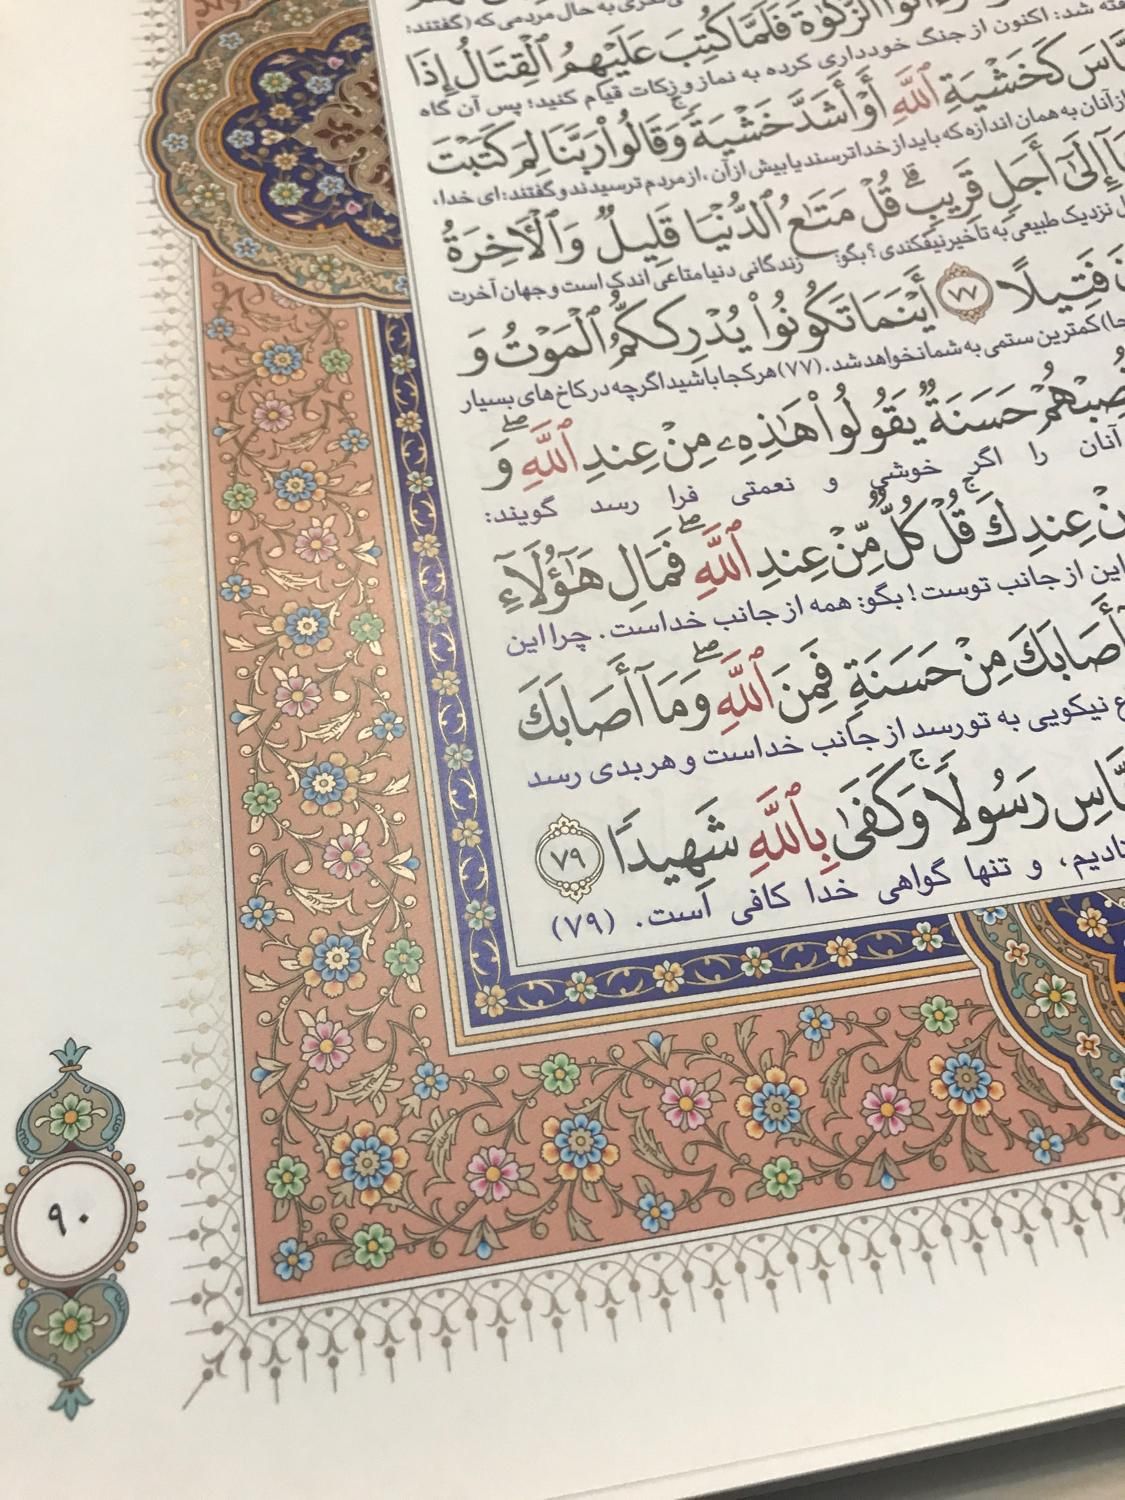 ٱلزَّكَوٰةَ فَلَمَّا كُتِبَ عَلَيْهِمُ ٱلْقِتَالُ إِذَا
شد: اکنون از جنگ خودداری کرده به نماز و زکات قیام کنید؛ پس آن گاه
كَخَشْيَةِ ٱللَّهِ أَوْ أَشَدَّ خَشْيَةً ۚ وَقَالُوا۟ رَبَّنَا لِمَ كَتَبْتَ
از آنان به همان اندازه که باید از خدا ترسند یا بیش از آن، از مردم ترسیدند و گفتند: ای خدا،
إِلَىٰٓ أَجَلٍ قَرِيبٍ ۗ قُلْ مَتَـٰعُ ٱلدُّنْيَا قَلِيلٌ وَٱلْـَٔاخِرَةُ
نزدیک طبیعی به تأخیر نیفکندی؟ بگو: زندگانی دنیا متاعی اندک است و جهان آخرت
فَتِيلًا ٧٧ أَيْنَمَا تَكُونُوا۟ يُدْرِككُّمُ ٱلْمَوْتُ وَ
کمترین ستمی به شما نخواهد شد. (۷۷) هر کجا باشید اگرچه در کاخ‌های بسیار
حَسَنَةٌ يَقُولُوا۟ هَـٰذِهِۦ مِنْ عِندِ ٱللَّهِ ۖ وَ
آنان را اگر خوشی و نعمتی فرا رسد گویند:
عِندِكَ ۚ قُلْ كُلٌّ مِّنْ عِندِ ٱللَّهِ ۖ فَمَالِ هَـٰٓؤُلَآءِ
این از جانب توست! بگو: همه از جانب خداست. چرا این
أَصَابَكَ مِنْ حَسَنَةٍ فَمِنَ ٱللَّهِ ۖ وَمَآ أَصَابَكَ
نیکویی به تو رسد از جانب خداست و هر بدی رسد
رَسُولًا ۚ وَكَفَىٰ بِٱللَّهِ شَهِيدًا ٧٩
و تنها گواهی خدا کافی است. (۷۹)
٩٠